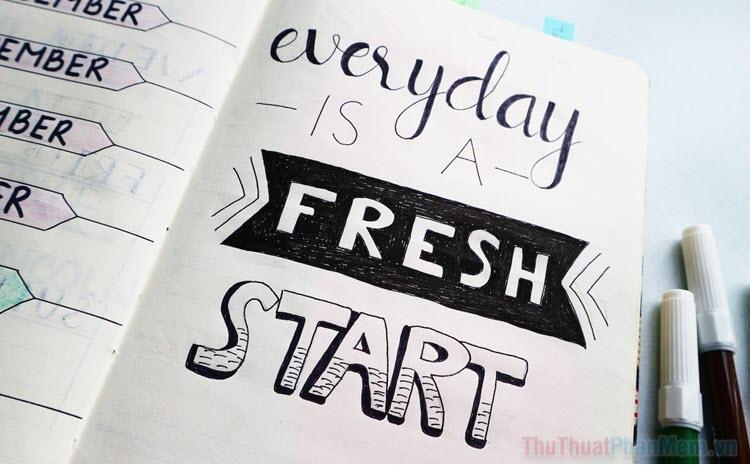 EMBER
EMBER
MBER
ER
everyday
– IS A –
FRESH
START
ThuThuatPhanMem.vn